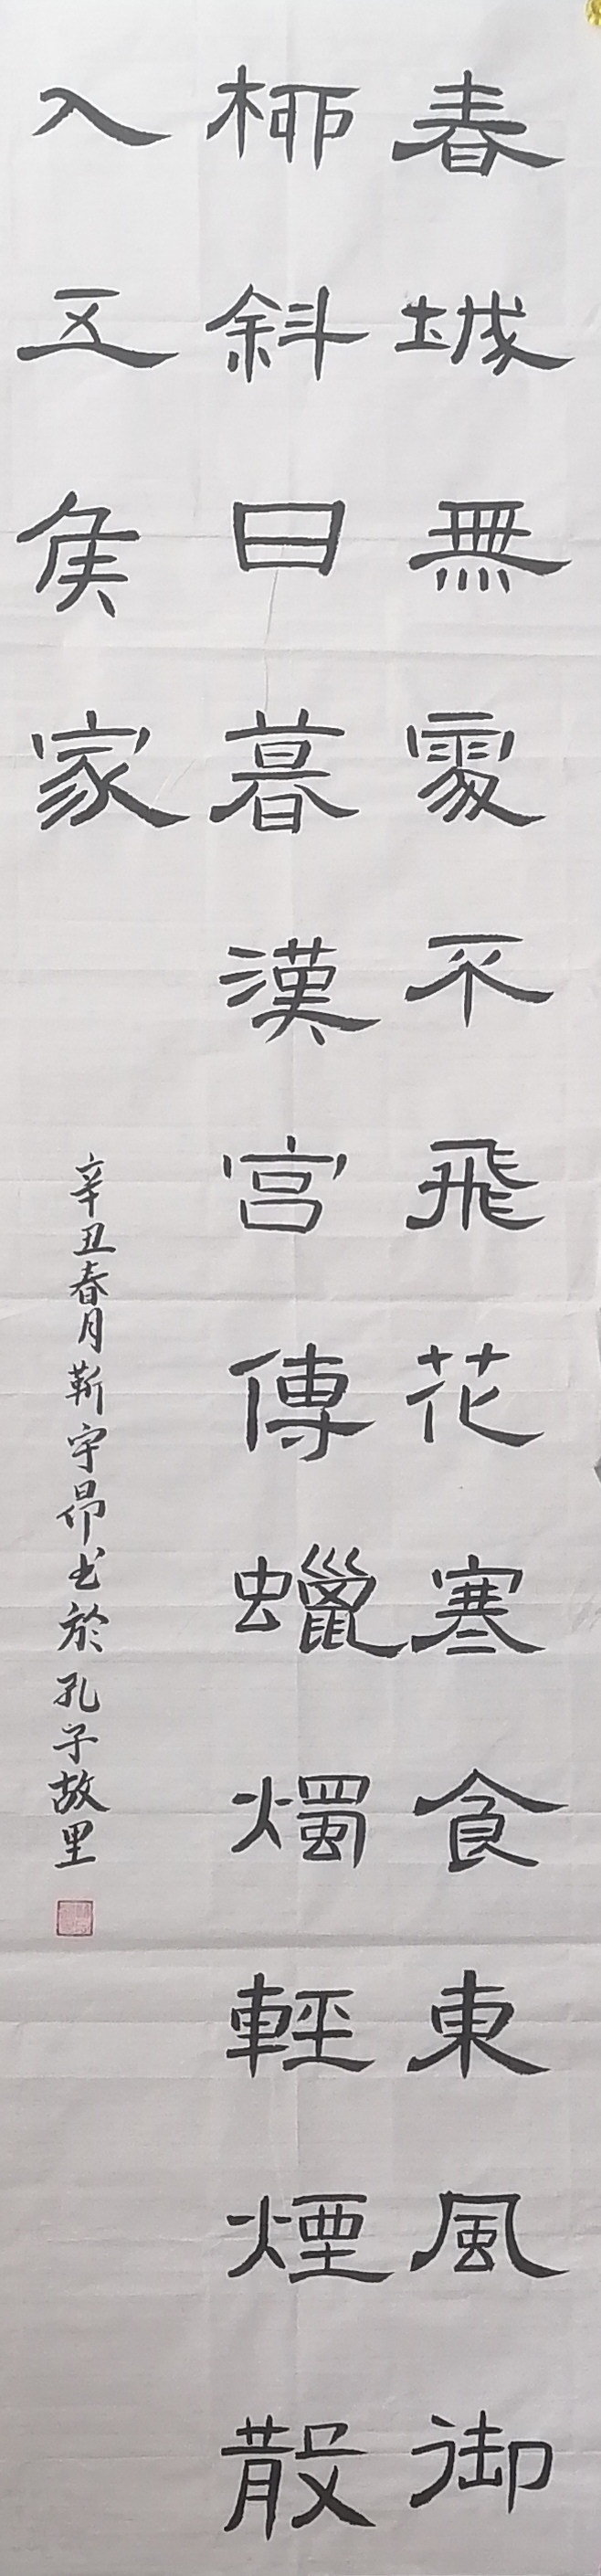 春城無處不飛花寒食東風御
柳斜日暮漢宫傳蠟燭輕煙散
入五侯家
辛丑春月靳宇昂书於孔子故里